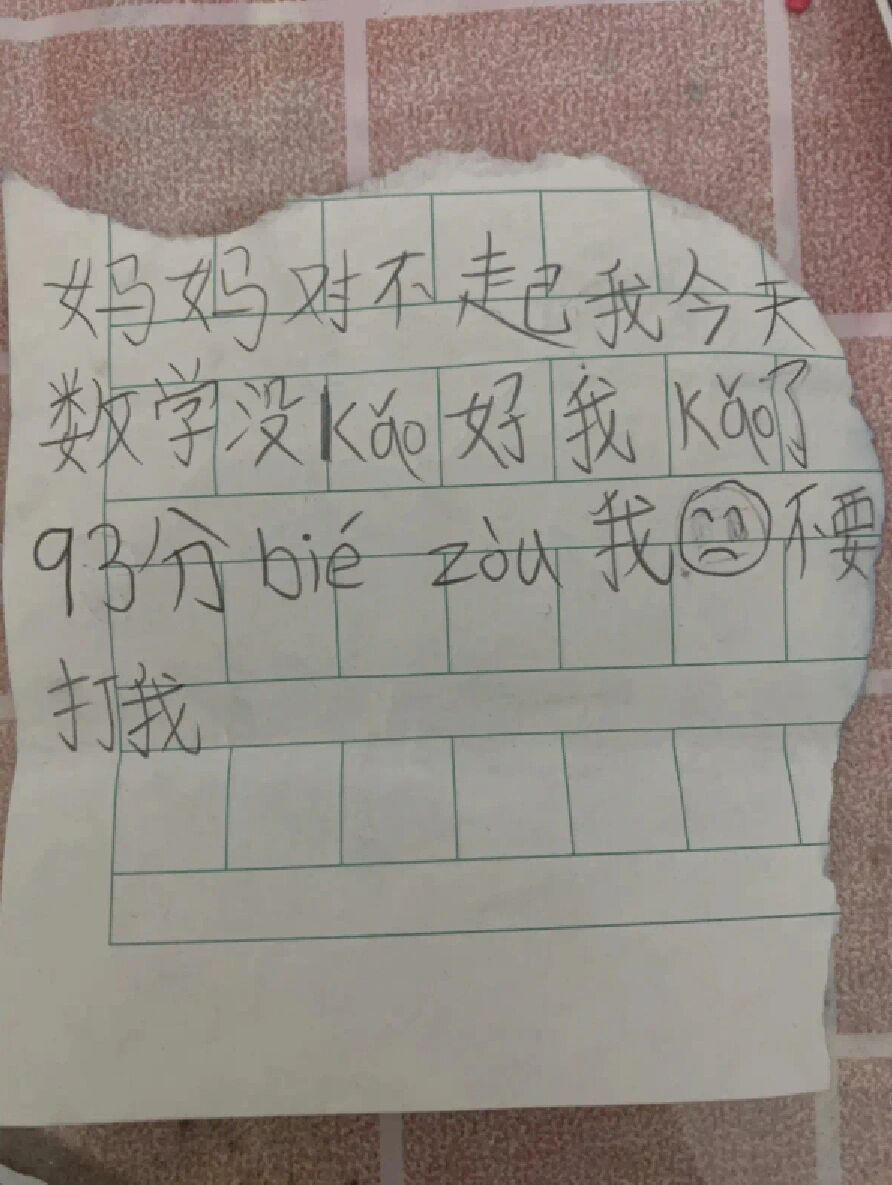 妈妈对不起我今天
数学没kǎo好我kǎo了
93分bié zòu我不要
打我